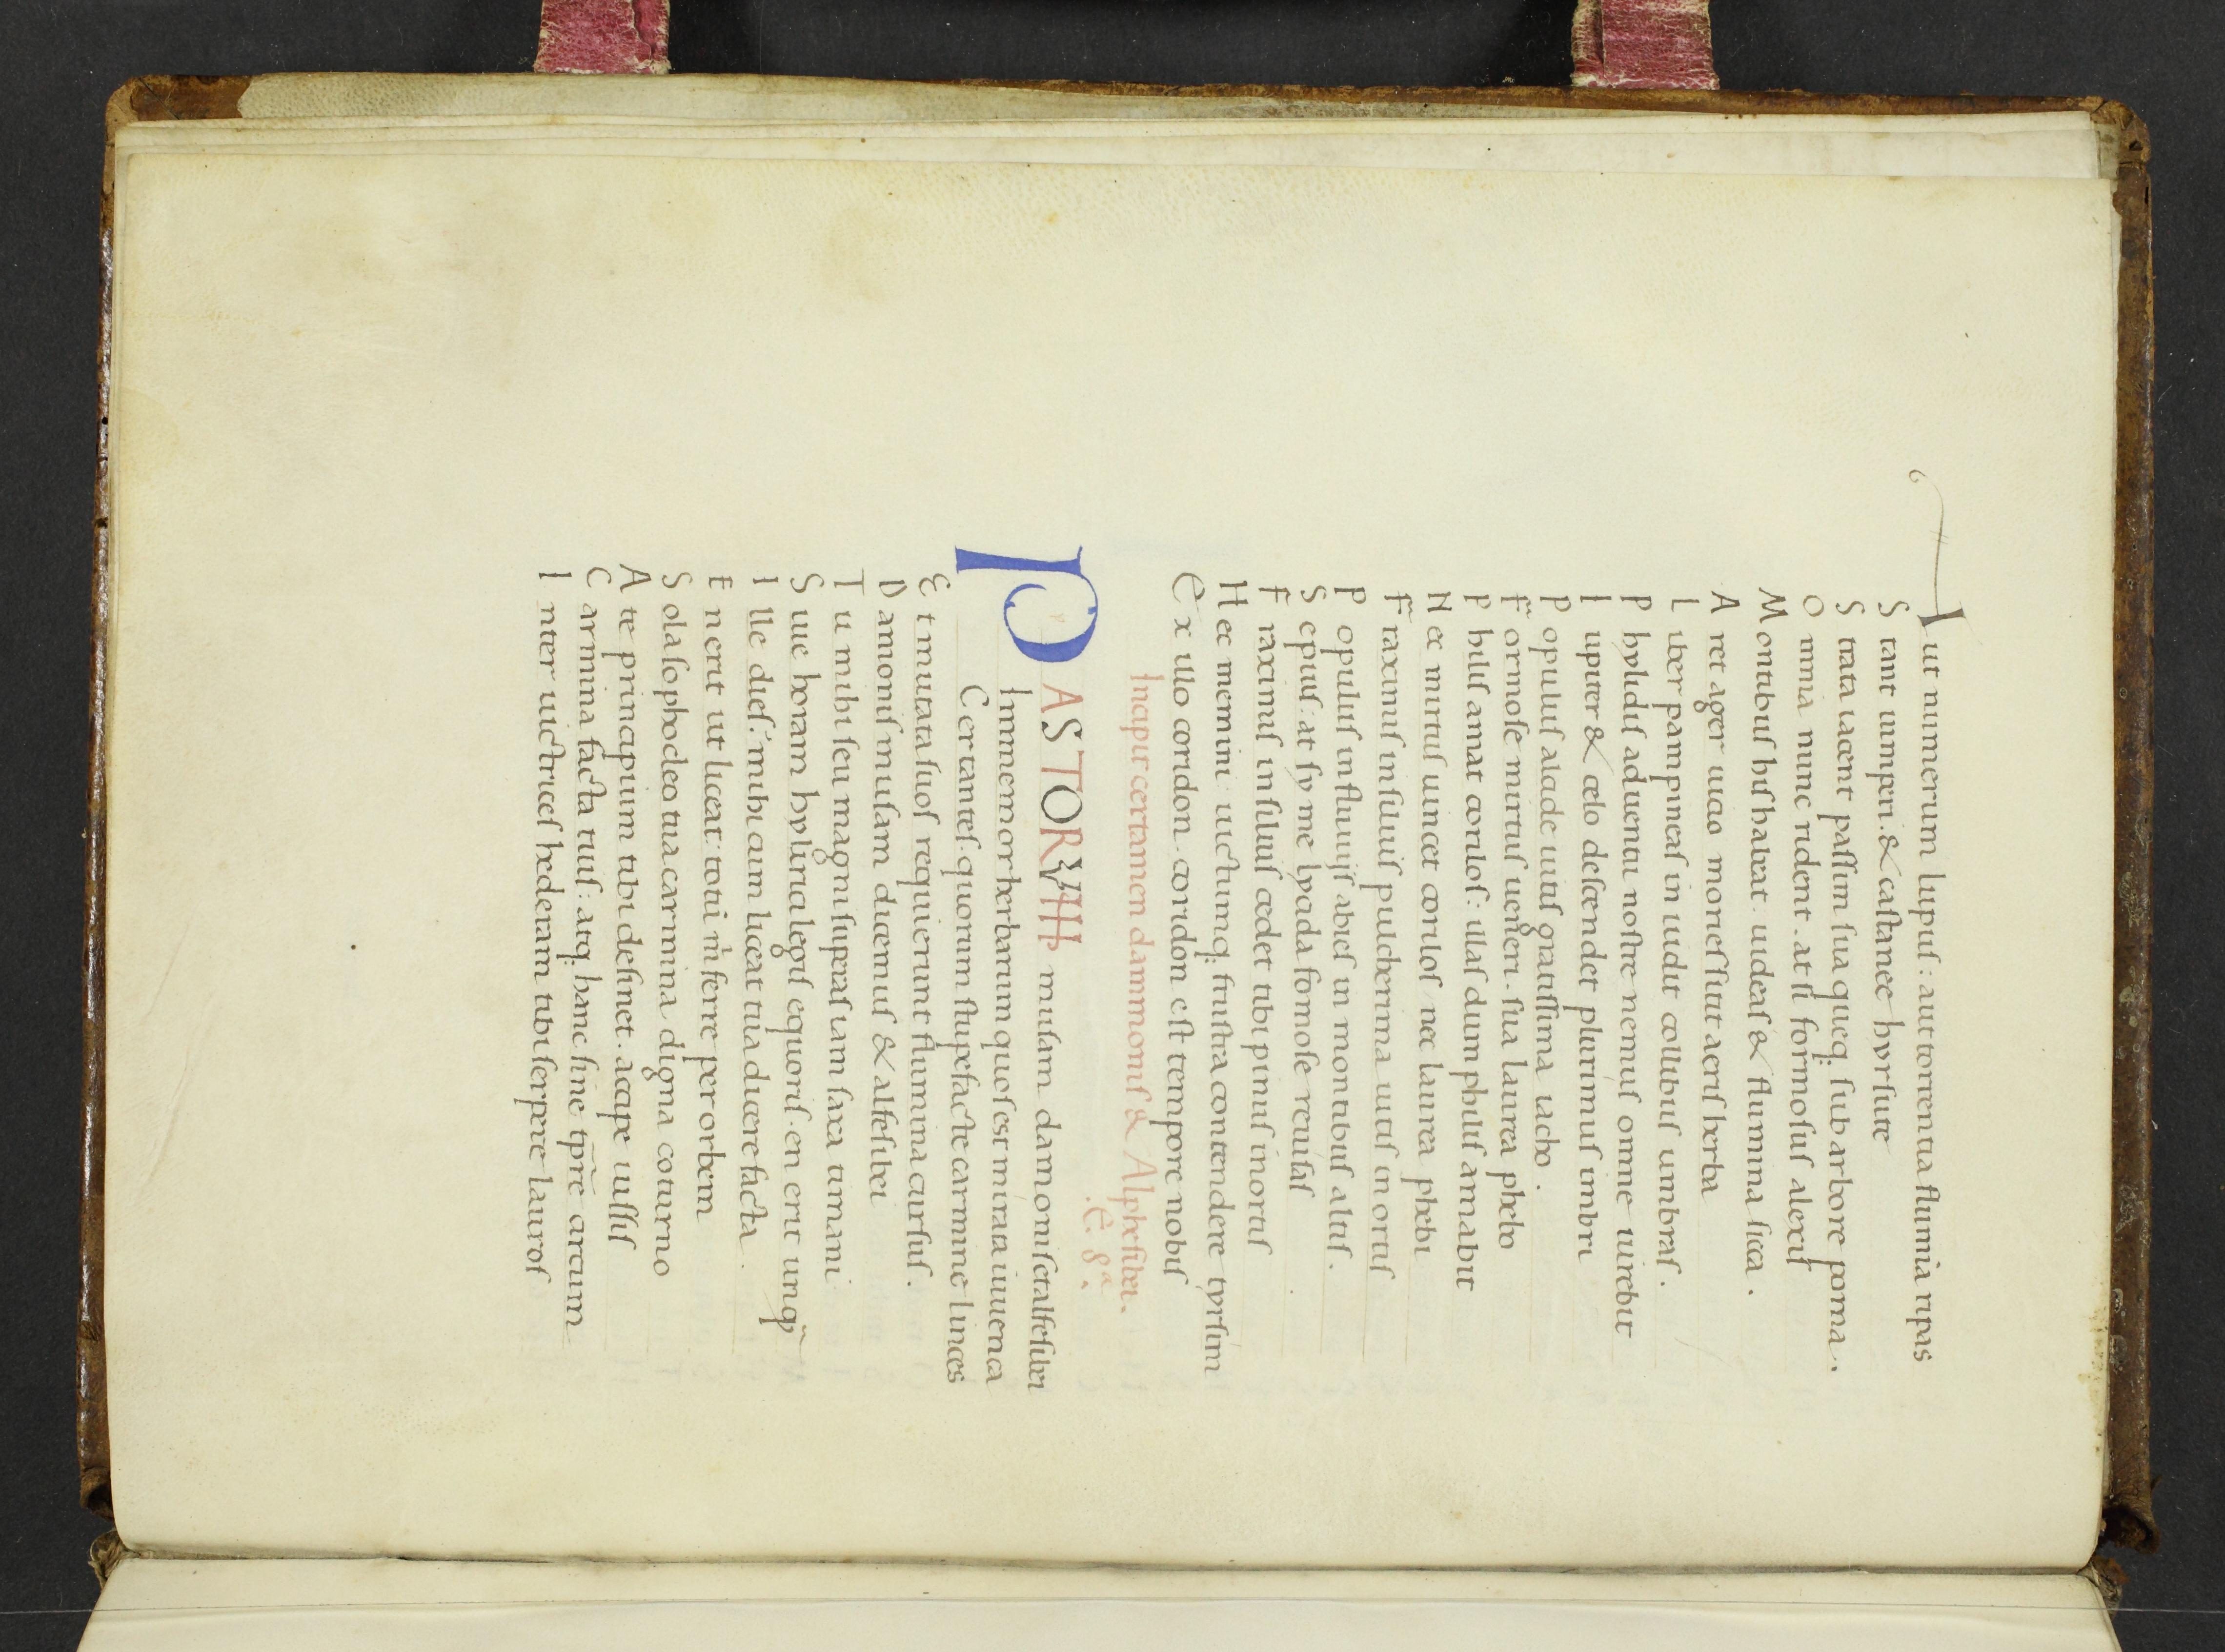 Aut numerum lupuſ: aut torrentia flumina ripas
Stant iuniperi. & caſtaneę hyrſutę
Strata iacent paſſim ſua quęq; ſub arbore poma.
Omnia nunc rident. at ſi formoſuſ alexiſ
Montibuſ hiſ habeat uideaſ & flumina ſicca.
Aret ager uicio morienſ ſitit aeriſ herba
Liber pampineaſ inuidit collibuſ umbraſ.
Phylidiſ aduentu noſtrę nemuſ omne uirebit
Iupiter & cęlo deſcendet plurimuſ imbri
Populuſ alcidę uitiſ gratiſſima iacho.
Formoſę mirtuſ ueneri. ſua laurea phebo
Philiſ amat coriloſ: illaſ dum philiſ amabit
Nec mirtuſ uincet coriloſ nec laurea phebi
Fraxinuſ in ſiluiſ pulcherrima uitiſ in ortiſ
Populuſ in fluuijſ abieſ in montibuſ altiſ.
Sepiuſ: at ſy me lycida formoſe reuiſaſ
Fraxinuſ in ſiluiſ cedet tibi pinuſ in ortiſ
Hec memini: uictumq; fruſtra contendere tyrſim
Ex illo coridon. coridon eſt tempore nobiſ
Incipit certamen dammoniſ & Alpheſibei.
.E. 8ª.
PASTORVM muſam damoniſ et alfeſibei
Immemor herbarum quoſ est mirata iuuenca
Certanteſ. quorum ſtupefactę carmine linces
Et mutata ſuoſ requierunt flumina curſuſ.
Damoniſ muſam dicemuſ & alfeſibei
Tu mihi ſeu magni ſuperaſ iam ſaxa timani
Siue horam hylirici legiſ equoriſ. en erit unq̃
Ille dieſ: mihi cum liceat tua dicere facta.
En erit ut liceat totũ m̍ ferre per orbem
Sola ſophocleo tua carmina digna coturno
A te principium tibi deſinet. accipe iuſſiſ
Carmina facta tuiſ: atq; hanc ſine tp̄re circum
Inter uictriceſ hederam tibi ſerpere lauroſ